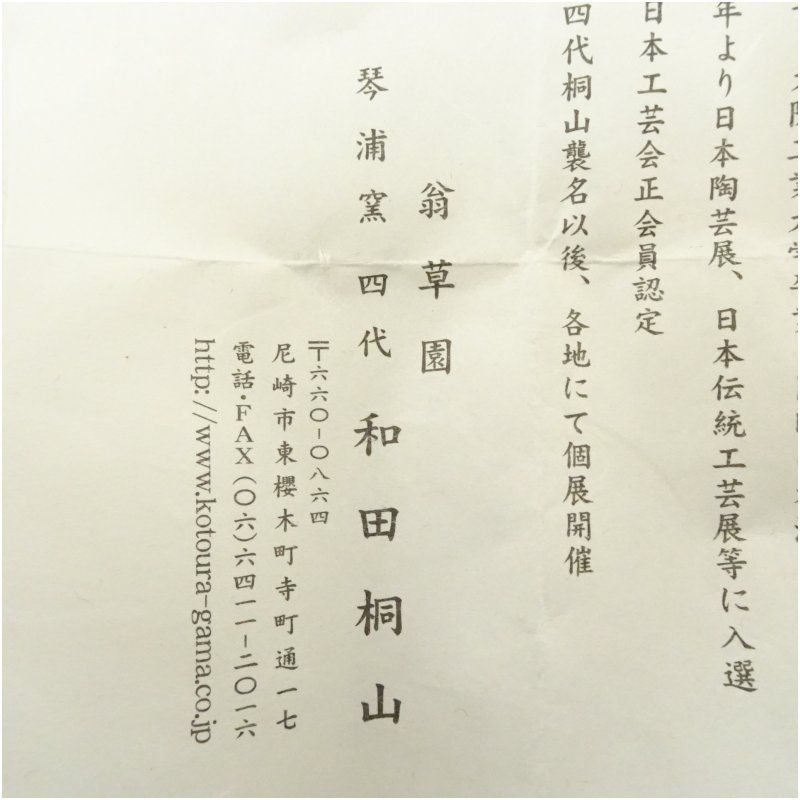 年より日本陶芸展、日本伝統工芸展等に入選
日本工芸会正会員認定
四代桐山襲名以後、各地にて個展開催
翁草園
琴浦窯 四代 和田桐山
〒六六〇-〇八六四
尼崎市東櫻木町寺町通一七
電話・FAX(〇六)六四一一-二〇一六
http://www.kotoura-gama.co.jp